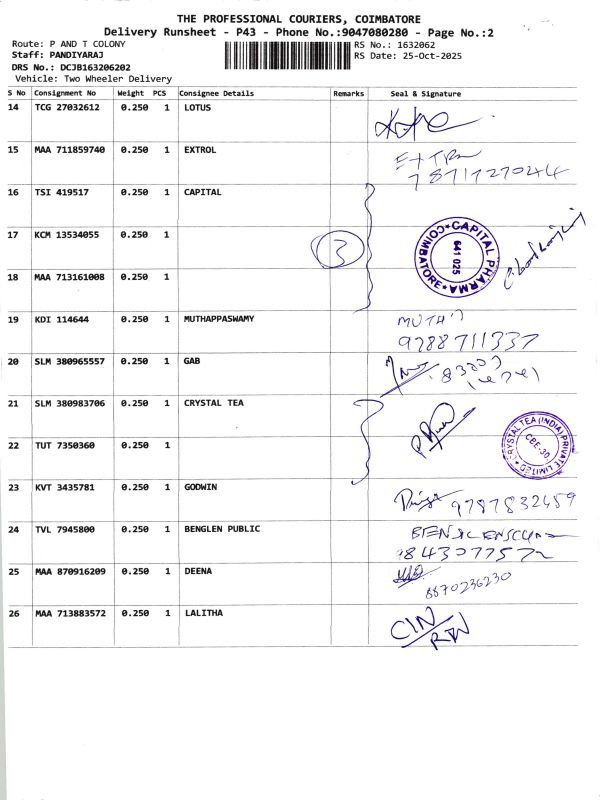 THE PROFESSIONAL COURIERS, COIMBATORE
Delivery Runsheet - P43 - Phone No.:9047080280 - Page No.:2
Route: P AND T COLONY
Staff: PANDIYARAJ
DRS No.: DCJB163206202
Vehicle: Two Wheeler Delivery
RS No.: 1632062
RS Date: 25-Oct-2025
S No Consignment No Weight PCS Consignee Details Remarks Seal & Signature
14 TCG 27032612 0.250 1 LOTUS
15 MAA 711859740 0.250 1 EXTROL
7871727044
16 TSI 419517 0.250 1 CAPITAL
17 KCM 13534055 0.250 1
3
CAPITAL PHARMA
COIMBATORE
641 025
18 MAA 713161008 0.250 1
19 KDI 114644 0.250 1 MUTHAPPASWAMY
MUTH
9788711337
20 SLM 380965557 0.250 1 GAB
21 SLM 380983706 0.250 1 CRYSTAL TEA
CRYSTAL TEA (INDIA) PRIVATE LIMITED
CBE-30
22 TUT 7350360 0.250 1
23 KVT 3435781 0.250 1 GODWIN
9787832459
24 TVL 7945800 0.250 1 BENGLEN PUBLIC
25 MAA 870916209 0.250 1 DEENA
8870236230
26 MAA 713883572 0.250 1 LALITHA
CIN/
RTN